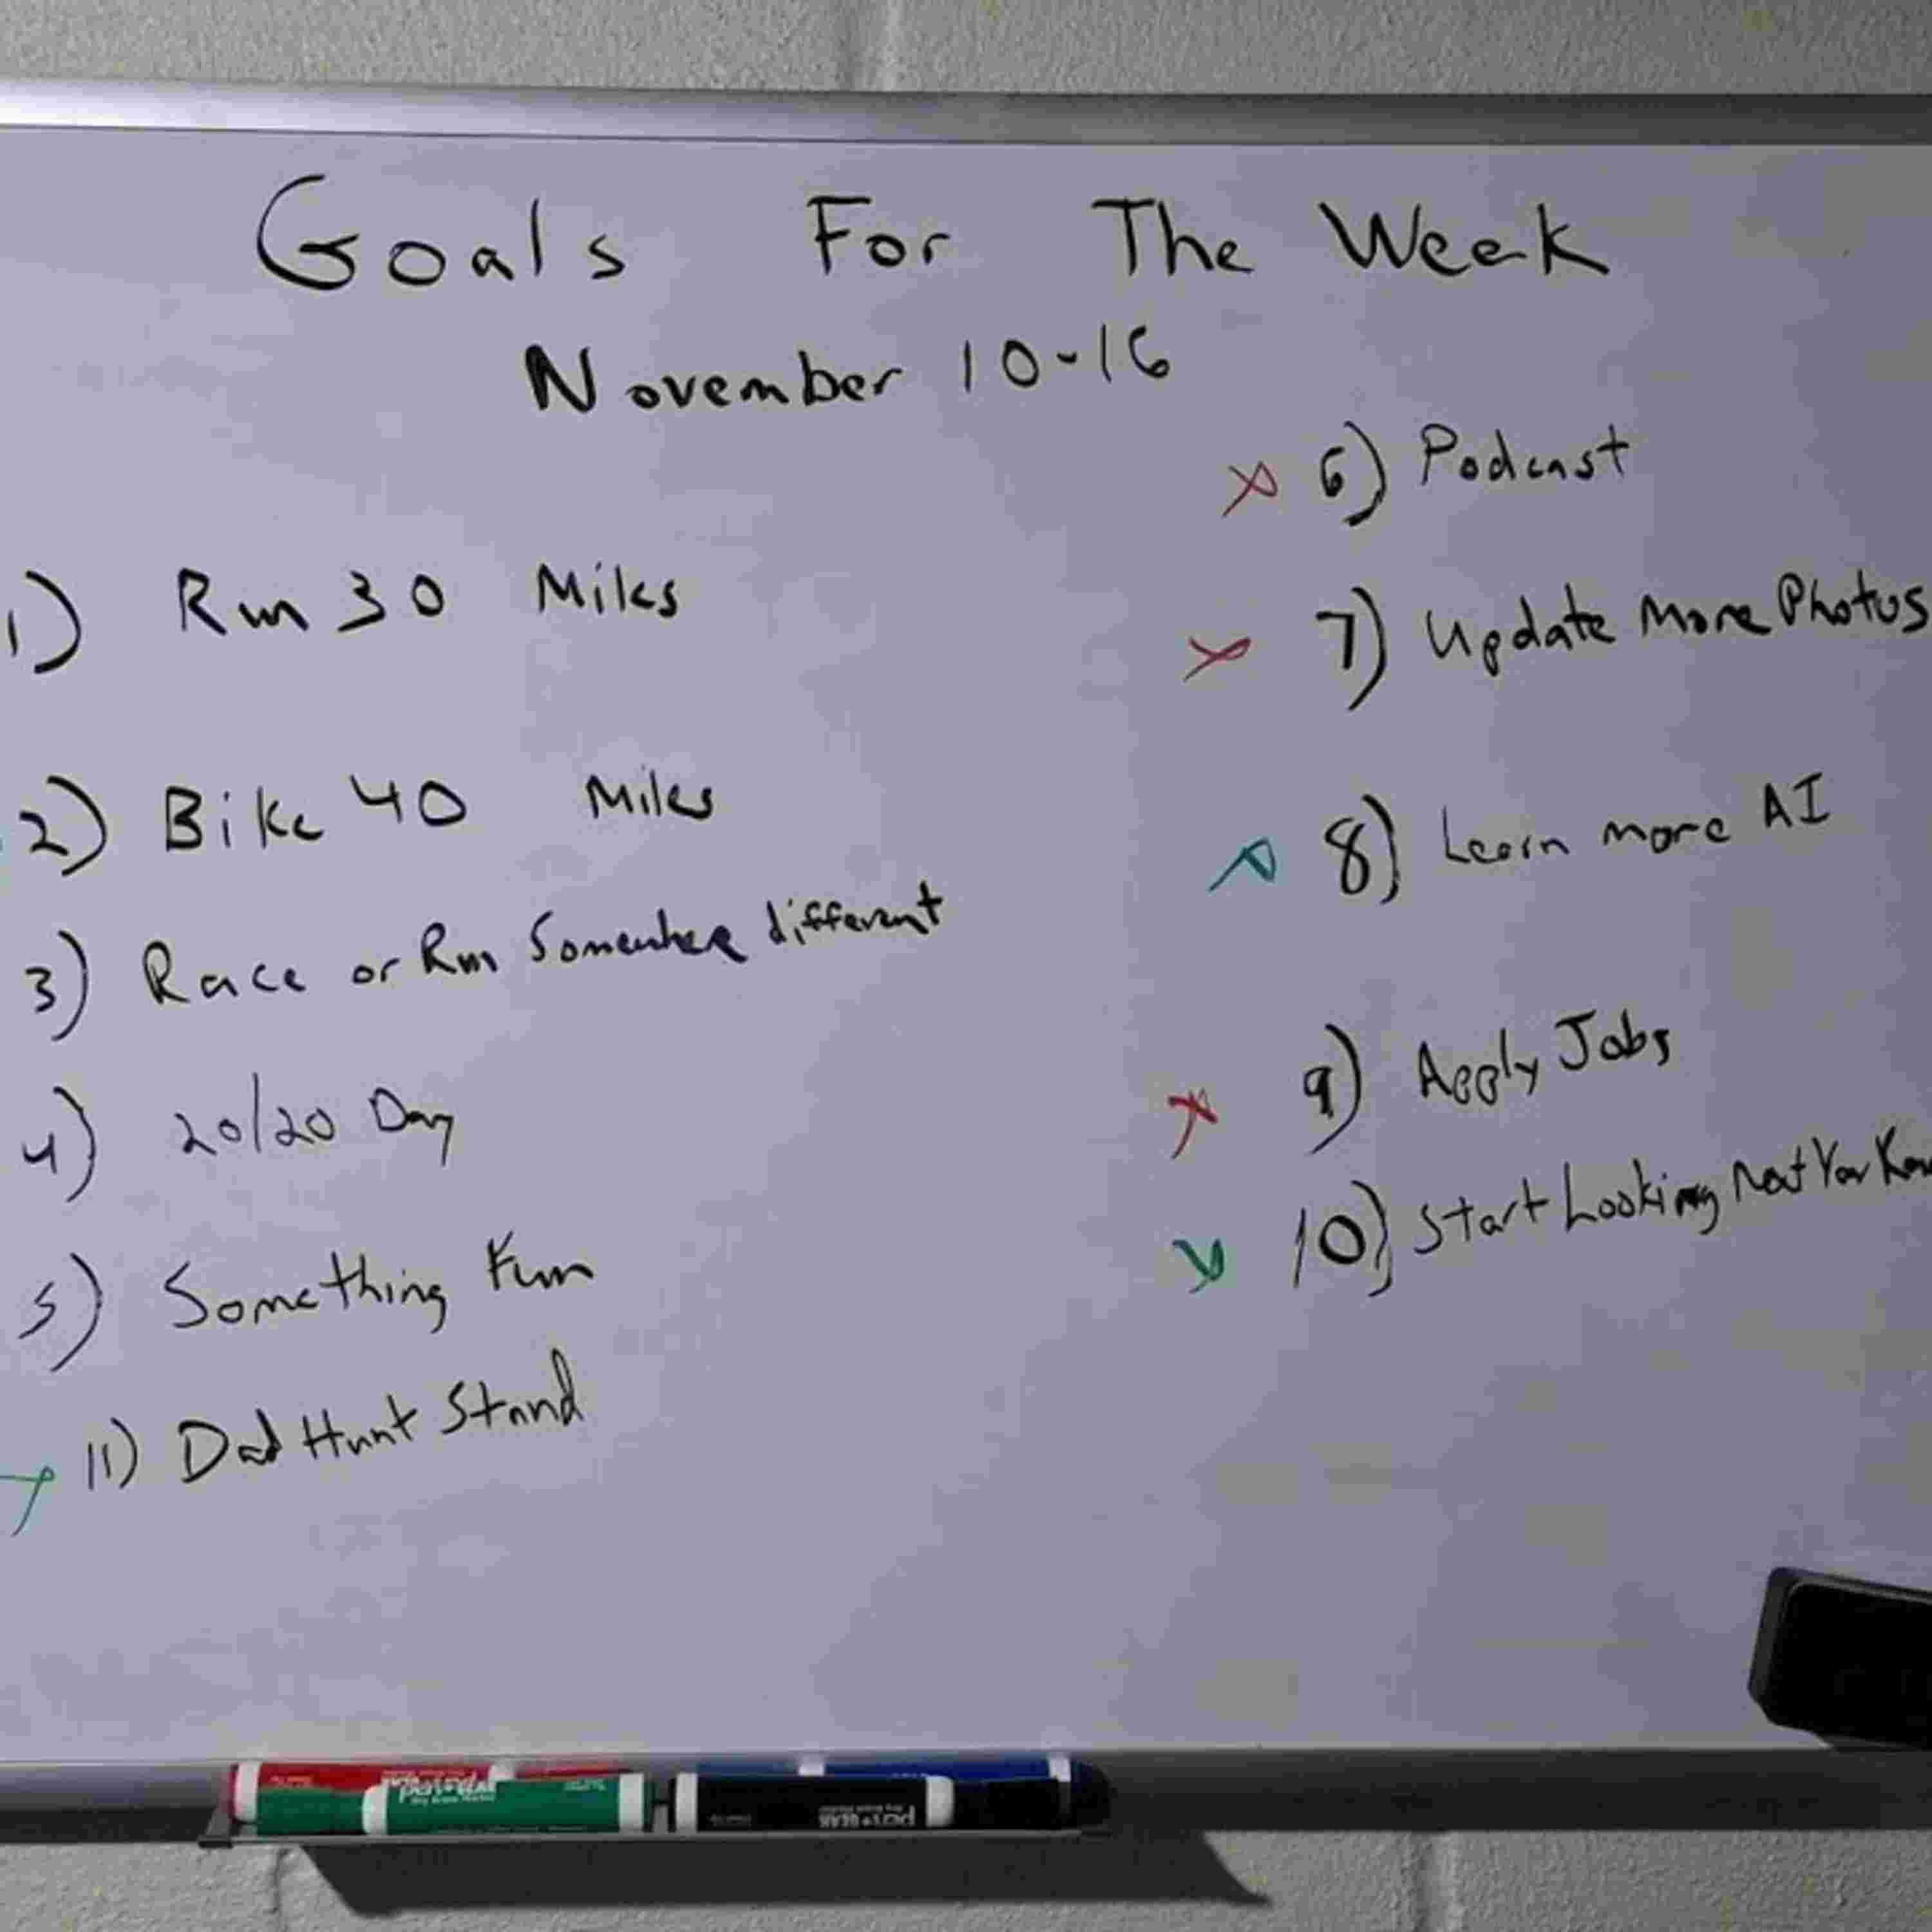 Goals For The Week
November 10-16
1) Run 30 Miles
2) Bike 40 Miles
3) Race or Run Somewhere different
4) 20/20 Day
5) Something Fun
11) Dad Hunt Stand
6) Podcast
7) Update More Photos
8) Learn more AI
9) Apply Jobs
10) Start Looking